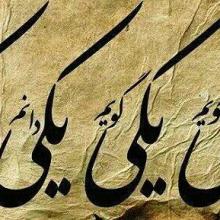 یکی گویم یکی دانم